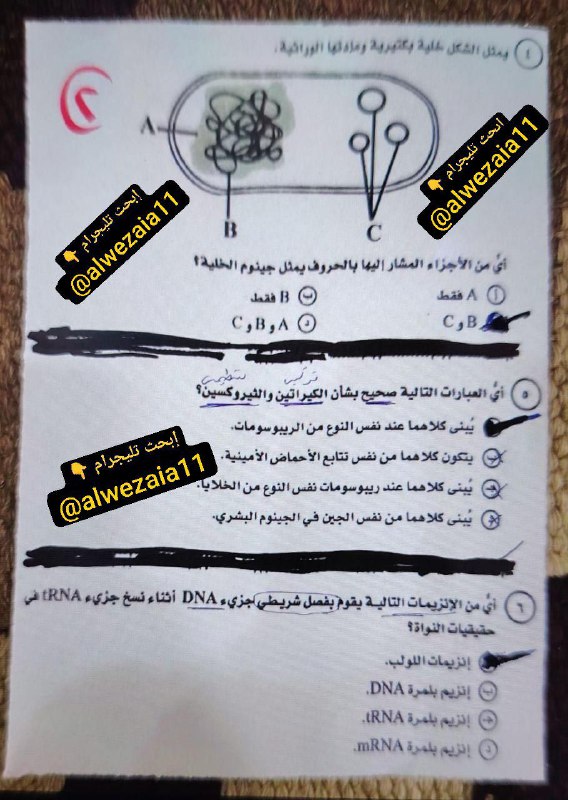 ٤ يمثل الشكل خلية بكتيرية ومادتها الوراثية.
٢
A
B
C
ابحث تليجرام 👇
@alwezaia11
إبحث تليجرام 👇
@alwezaia11
أيُّ من الأجزاء المشار إليها بالحروف يمثل جينوم الخلية؟
أ A فقط
ب B فقط
B و C
د A و B و C
ترتيب تنظيمي
٥ أيُّ العبارات التالية صحيح بشأن الكيراتين والثيروكسين؟
يُبنى كلاهما عند نفس النوع من الريبوسومات.
ب يتكون كلاهما من نفس تتابع الأحماض الأمينية.
ج يُبنى كلاهما عند ريبوسومات نفس النوع من الخلايا.
د يُبنى كلاهما من نفس الجين في الجينوم البشري.
إبحث تليجرام 👇
@alwezaia11
٦ أيُّ من الإنزيمات التالية يقوم بفصل شريطي جزيء DNA أثناء نسخ جزيء tRNA في
حقيقيات النواة؟
إنزيمات اللولب.
ب إنزيم بلمرة DNA.
ج إنزيم بلمرة tRNA.
د إنزيم بلمرة mRNA.